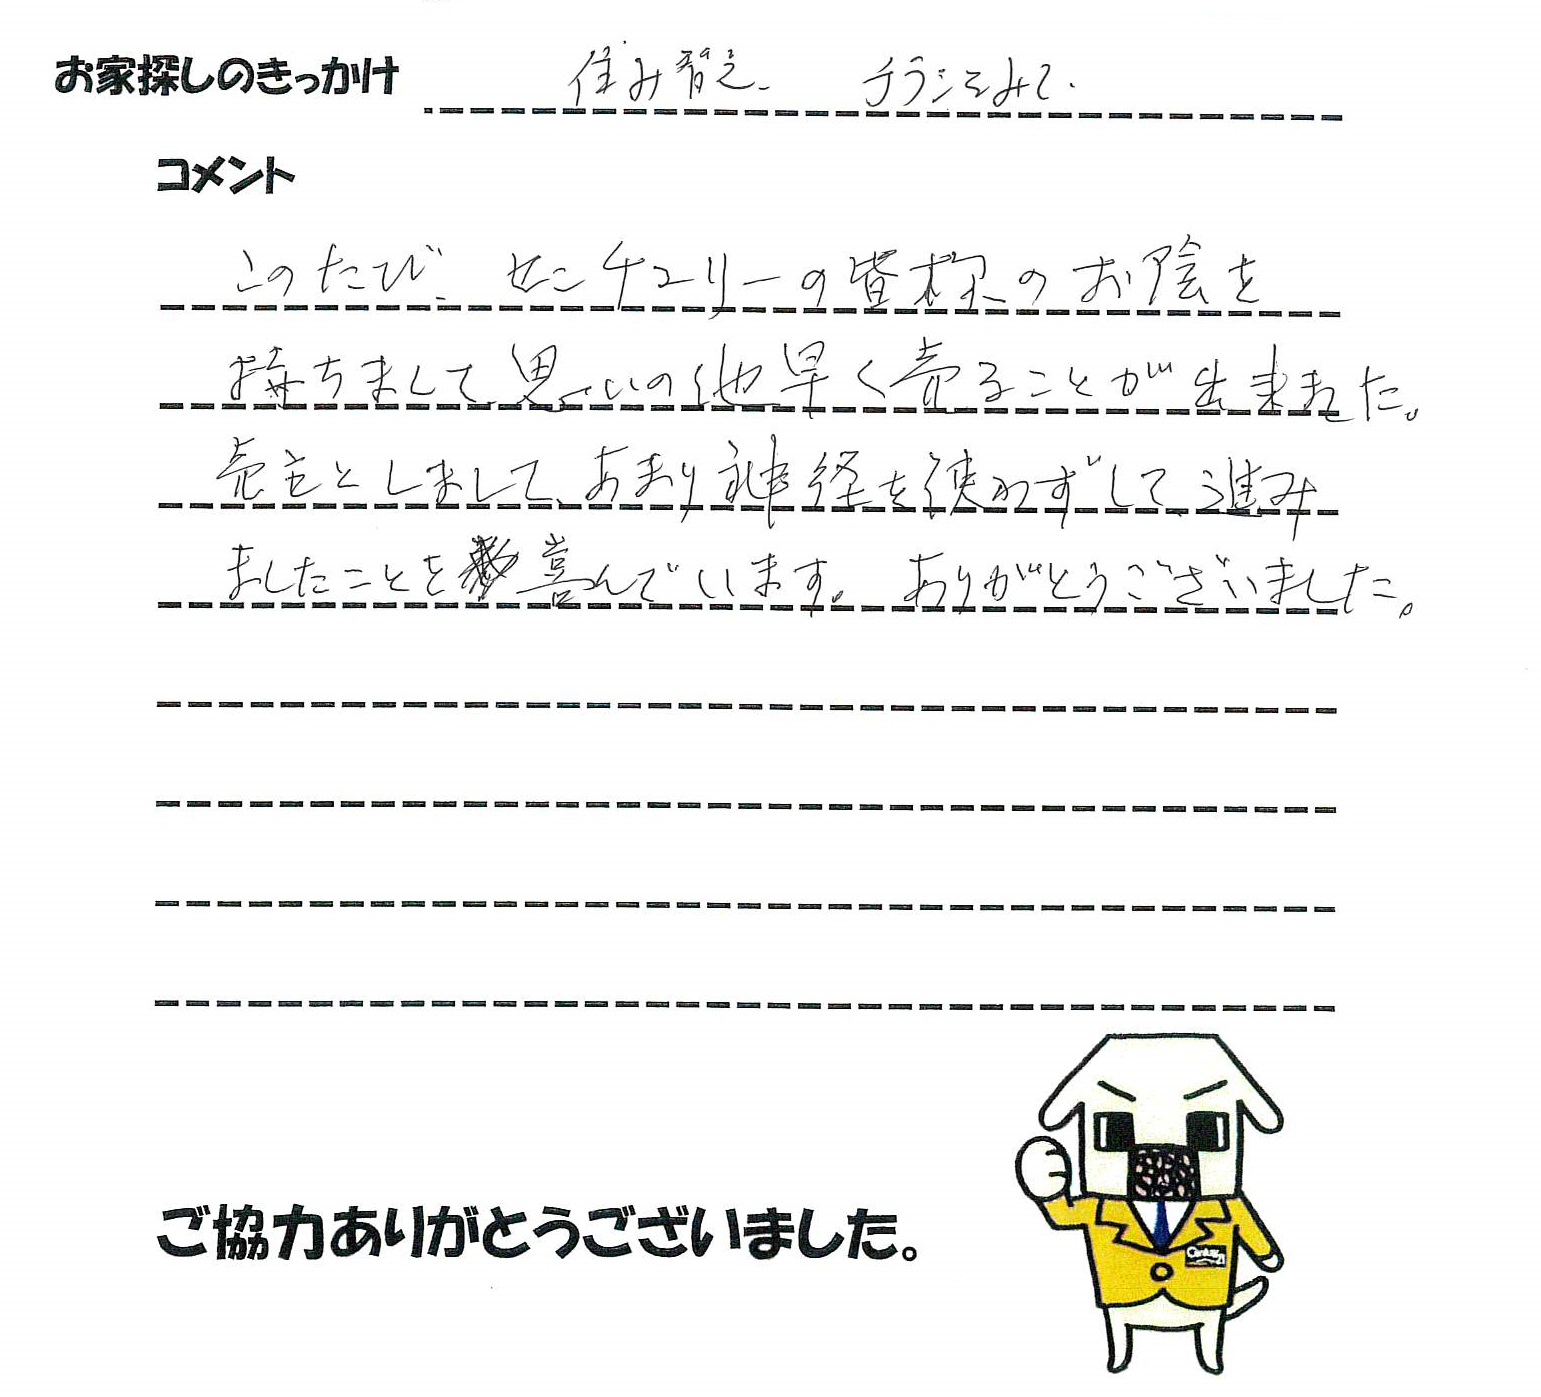 お家探しのきっかけ 住み替え、 チラシをみて.
コメント
このたび、センチュリーの皆様のお陰を
持ちまして、思いの他早く売ることが出来ました。
売主としまして、あまり神経を使わずして、進み
ましたことを喜んでいます。ありがとうございました。
ご協力ありがとうございました。
Century 21